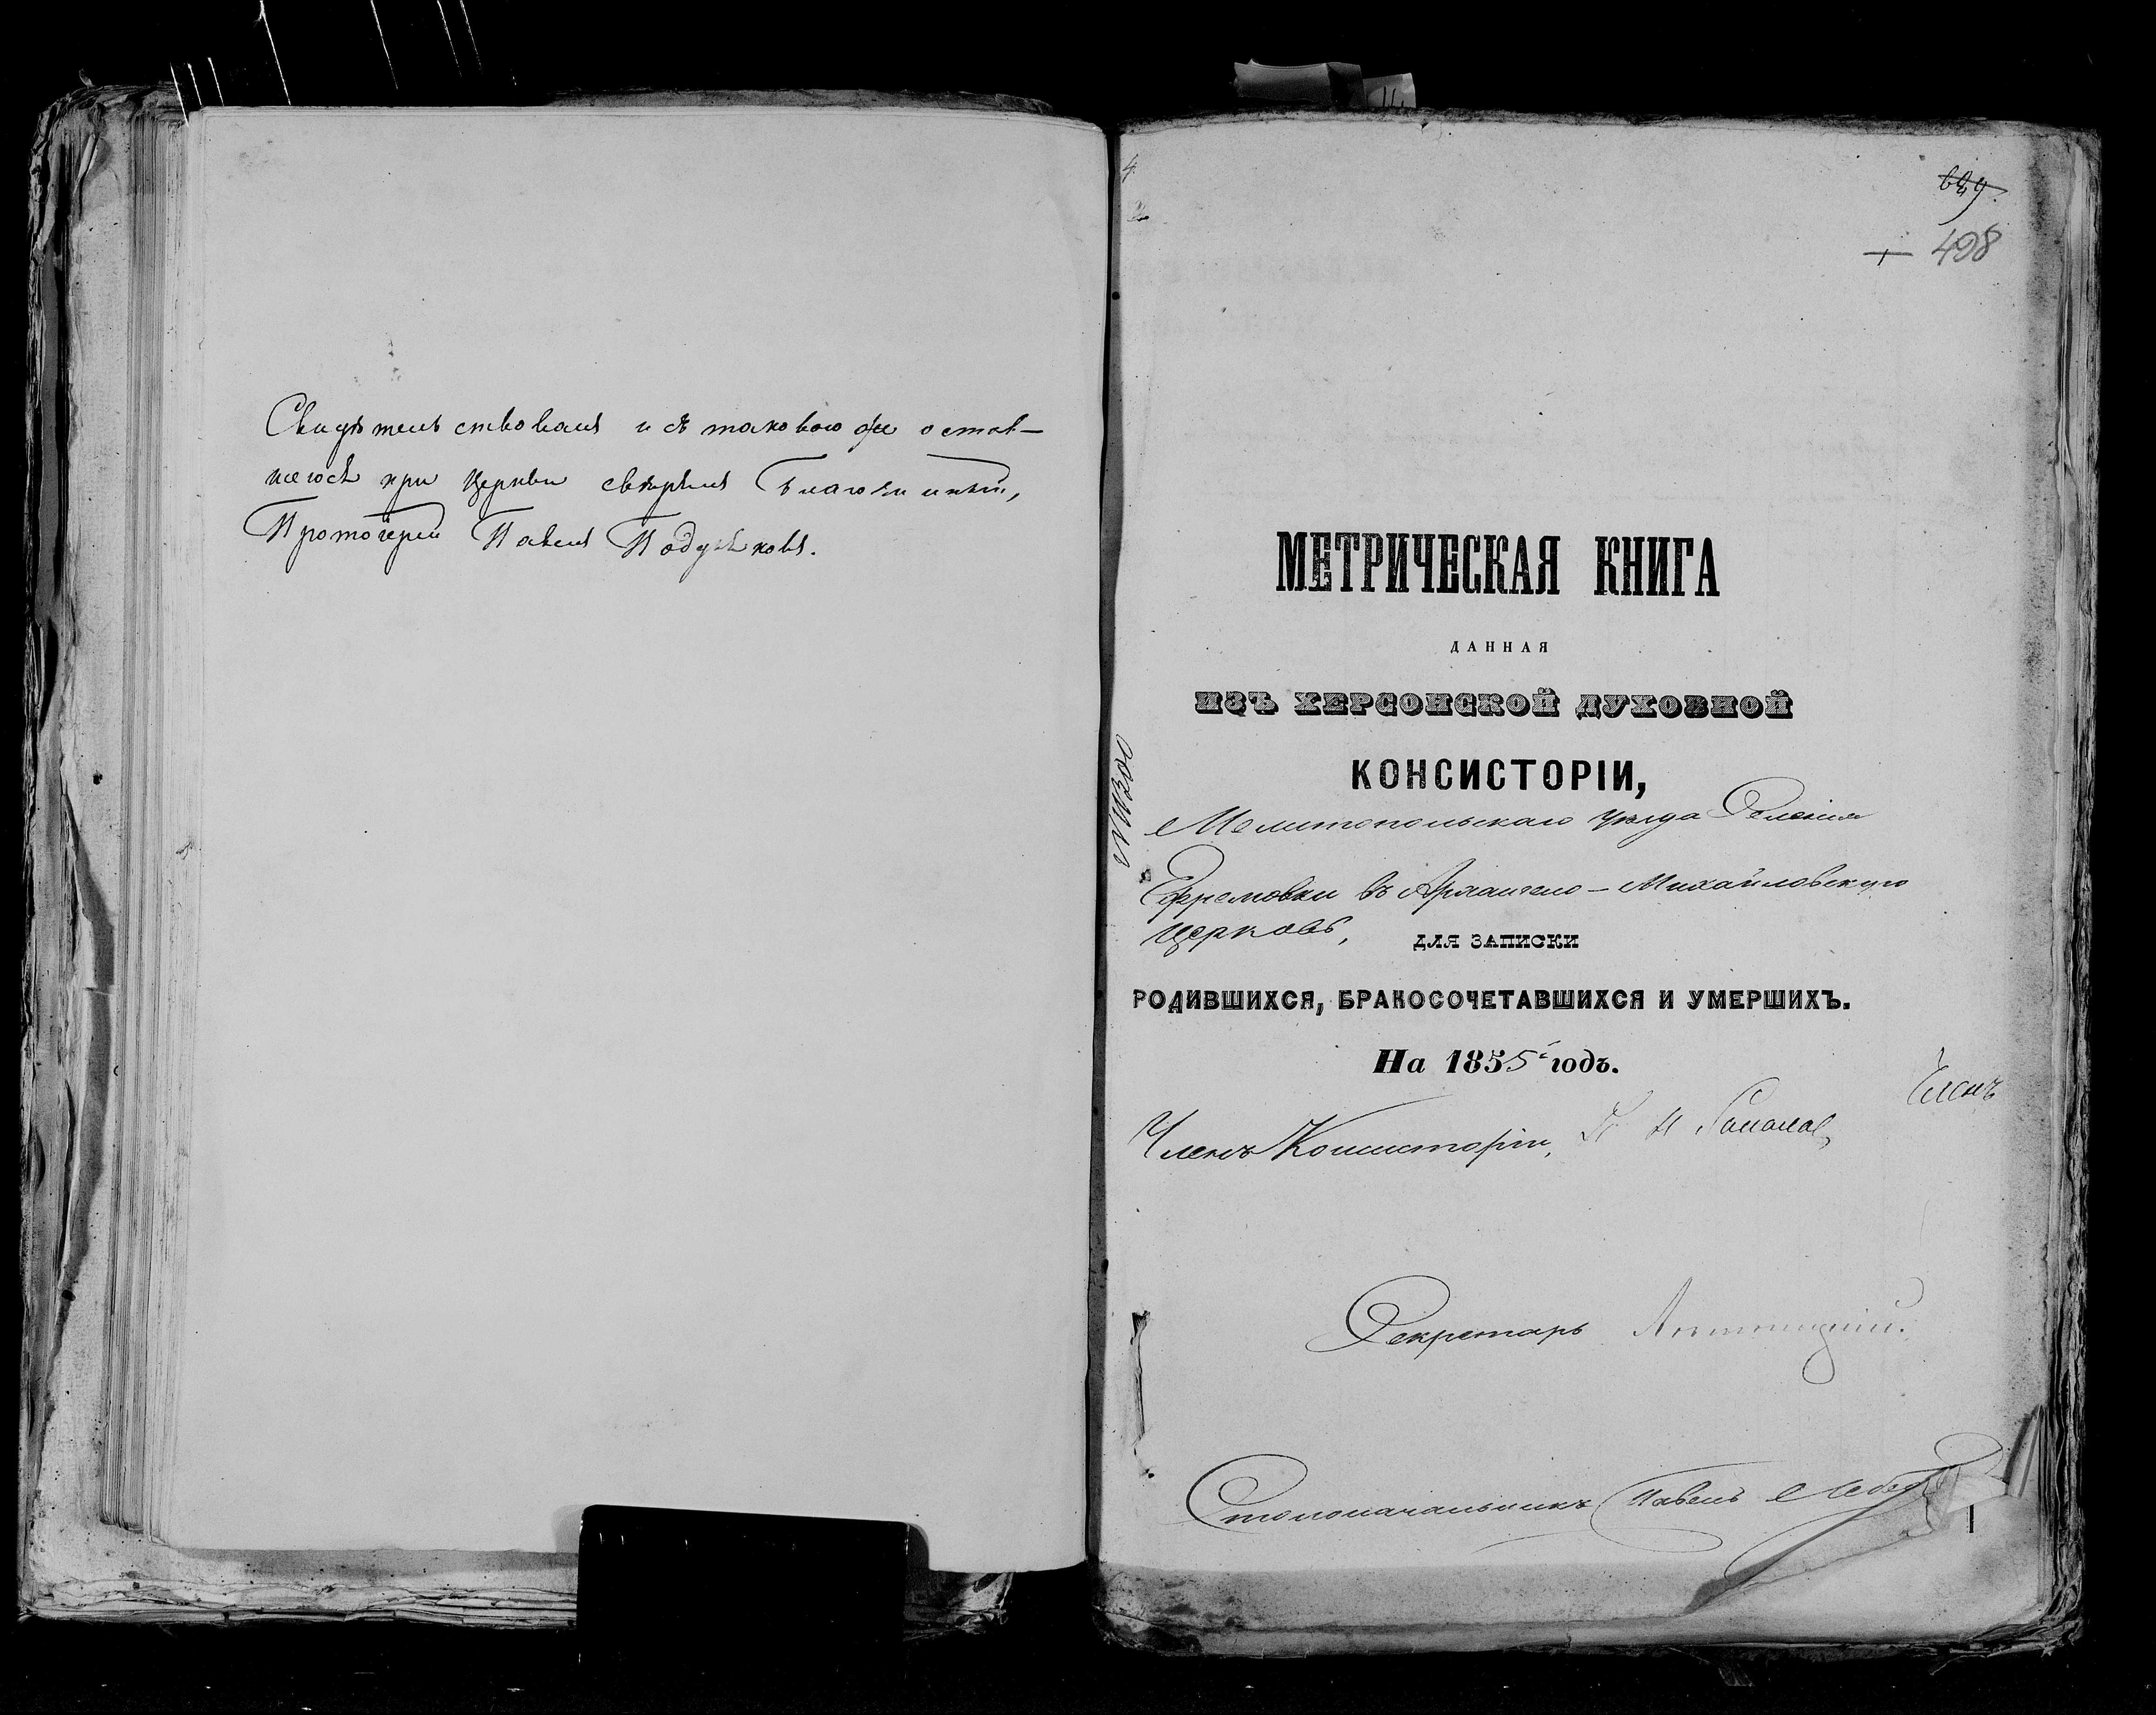 Свидѣтельствовалъ и съ таковою же остав-
шеюсѣ при Церкви свѣрялъ Благочинный,
Протоіерей Павелъ
498
МЕТРИЧЕСКАЯ КНИГА
ДАННАЯ
ИЗЪ ХЕРСОНСКОЙ ДУХОВНОЙ
КОНСИСТОРІИ,
Мелитопольскаго уѣзда Селенія
Ефремовки въ Архангело-Михайловскую
Церковь,
ДЛЯ ЗАПИСКИ
РОДИВШИХСЯ, БРАКОСОЧЕТАВШИХСЯ И УМЕРШИХЪ.
На 1855 годъ.
Членъ
Членъ Консисторіи,
Секретарь
Столоначальникъ Павелъ